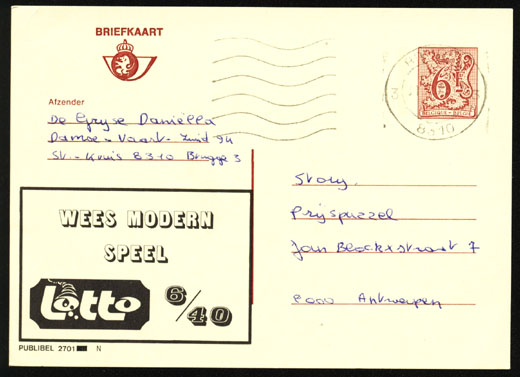 BRIEFKAART
Afzender
De Gryse Daniëlla
Damse-Vaart-Zuid 94
St.-Kruis 8310 Brugge 3
6F
BELGIQUE-BELGIË
8310
Story
Prijspuzzel
Jan Blockxstraat 7
2000 Antwerpen
WEES MODERN
SPEEL
Lotto 6/40
PUBLIBEL 2701 N